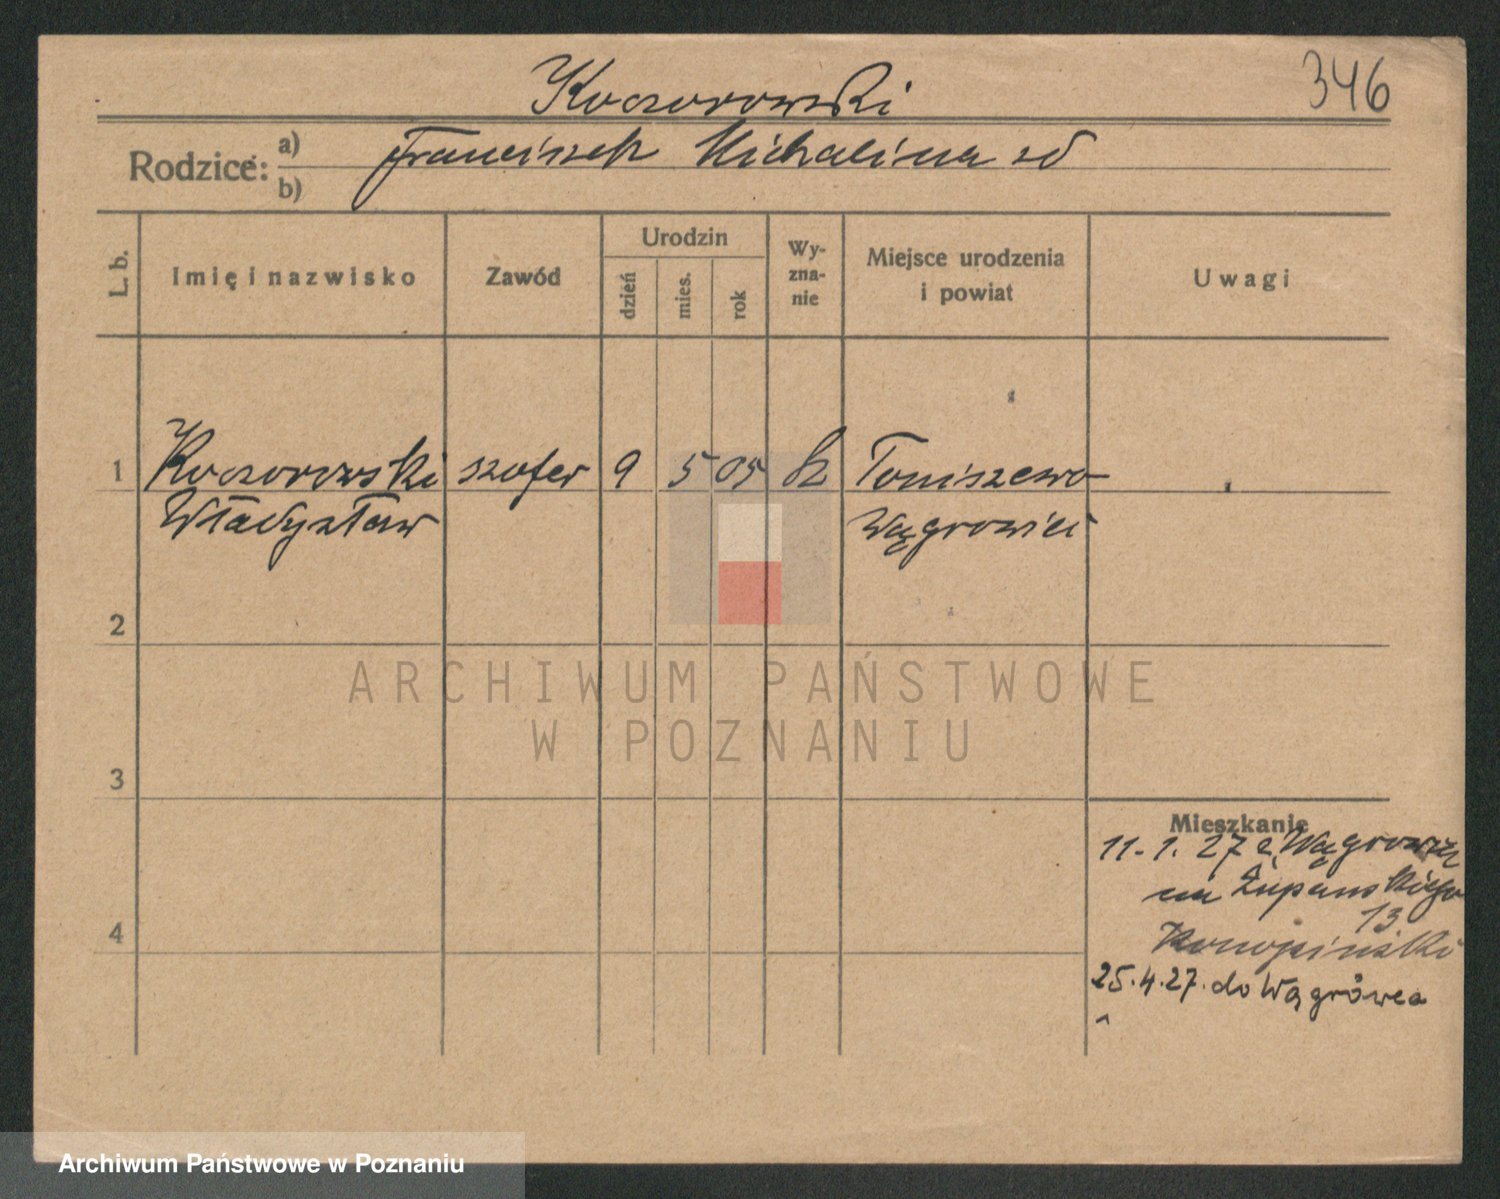 Koczorowski
346
Rodzice: a) Franciszek Michalina zd
b)
L. b.
Imię i nazwisko
Zawód
Urodzin
dzień
mies.
rok
Wy-
zna-
nie
Miejsce urodzenia
i powiat
Uwagi
1 Koczorowski szofer 9 5 05 Toniszewo
Władysław Wągrowiec
2
3
4
Mieszkanie
11.1.27 z Wągrowca
na Żupańskiego
13
25.4.27. do Wągrówca
ARCHIWUM PAŃSTWOWE
W POZNANIU
Archiwum Państwowe w Poznaniu